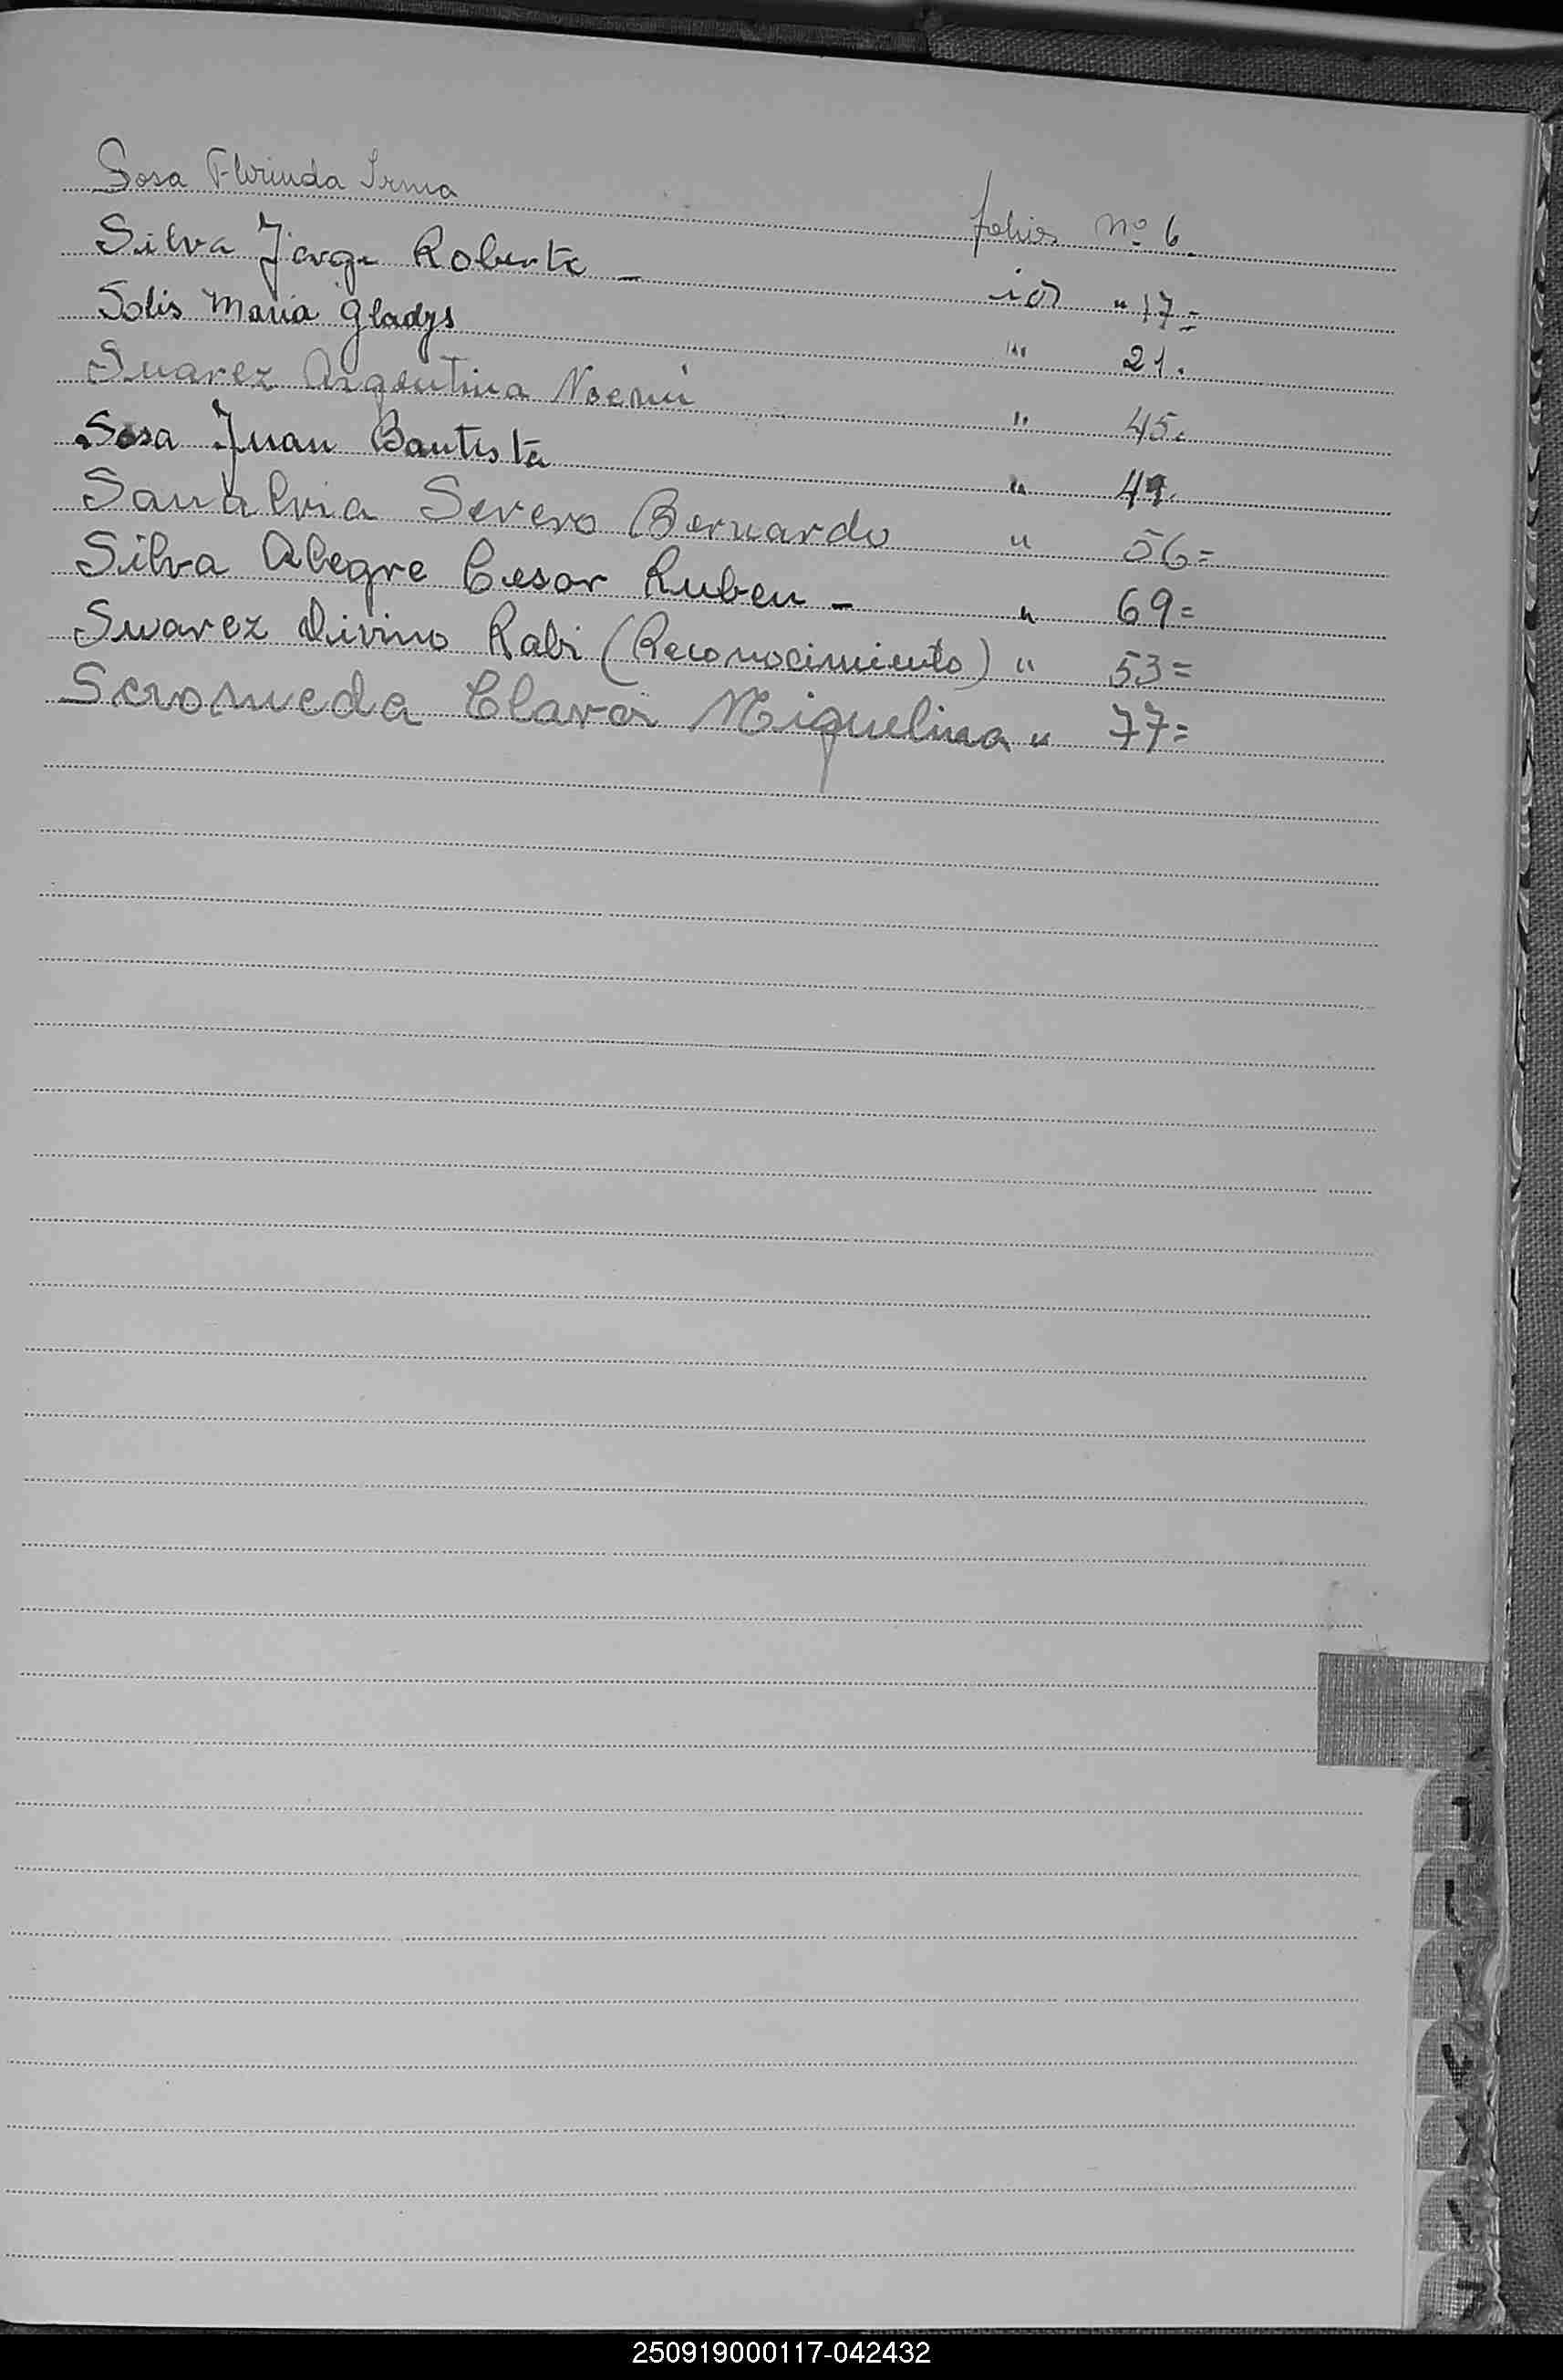 Sosa Florinda Irma folios nº 6.
Silva Jorge Roberto - id " 17=
Solis Maria Gladys " 21.
Suarez Argentina Noemi " 45.
Sosa Juan Bautista " 49.
Sanabria Severo Bernardo " 56=
Silva Alegre Cesar Ruben - " 69=
Suarez Divino Rabi (Reconocimiento) " 53=
Clara Miguelina " 77=
T
X
250919000117-042432